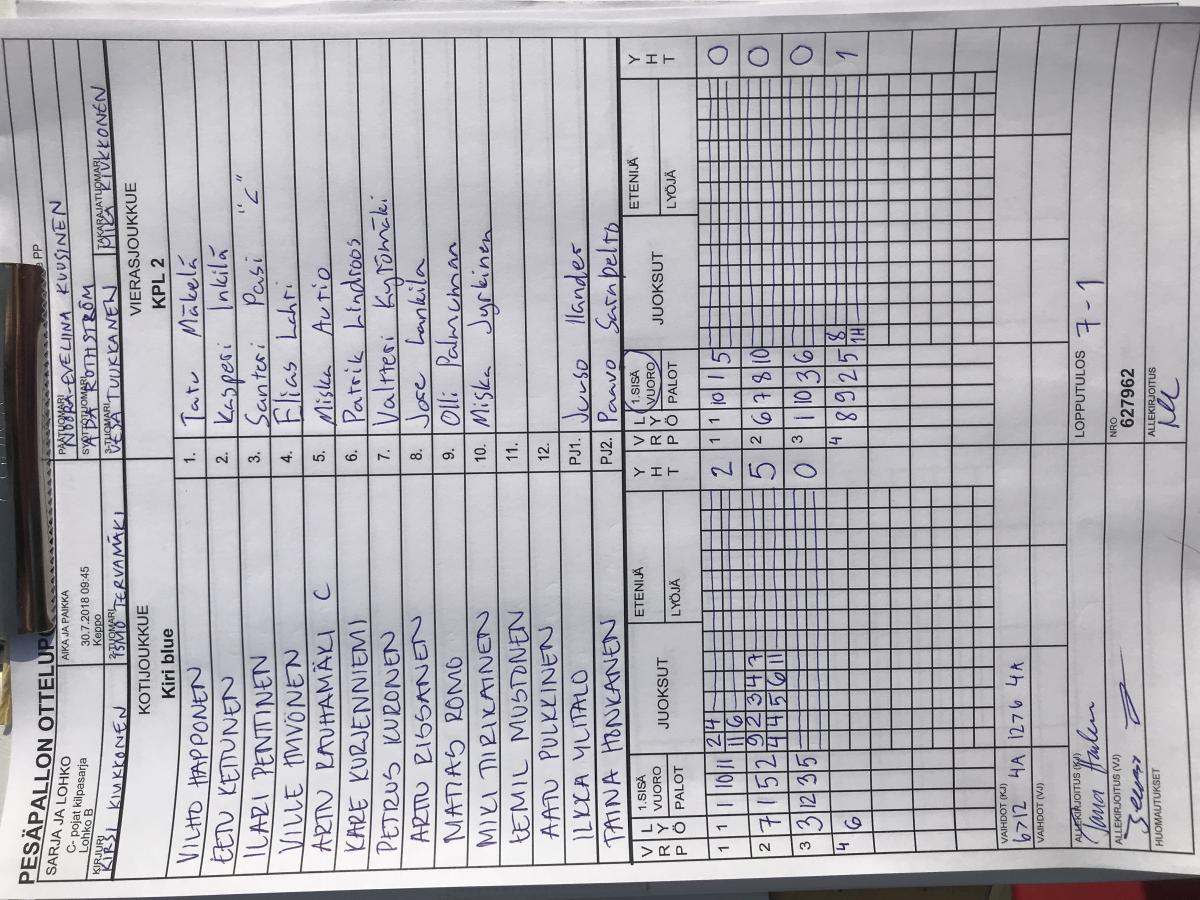 PESÄPALLON OTTELUP
e PP
SARJA JA LOHKO
C- pojat kilpasarja
Lohko B
AIKA JA PAIKKA
30.7.2018 09:45
Keppo
PÄÄTUOMARI
NOORA-EVELIINA KUUSINEN
SYÖTTÖTUOMARI
SAIDA ROTHSTRÖM
KIRJURI
KIRSI KIVIKKONEN
2-TUOMARI
ISMO TERVAMÄKI
3-TUOMARI
VESA TUUKKANEN
TAKARAJATUOMARI
MIKA KIVIKKONEN
KOTIJOUKKUE
Kiri blue
VIERASJOUKKUE
KPL 2
VILHO HAPPONEN 1. Tatu Mäkelä
EETU KETTUNEN 2. Kasperi Inkilä
ILARI PENTTINEN 3. Santeri Pasi "C"
VILLE 4. Elias Lahti
ARTTU RAUHAMÄKI C 5. Miska Autio
KARE KURJENNIEMI 6. Patrik Lindroos
PETRUS KURONEN 7. Valtteri Kytömäki
ARTTU RISSANEN 8. Joce Lankila
MATIAS ROMO 9. Olli Palmuman
MIKI TIIRIKAINEN 10. Miska Jyrkinen
EEMIL MUSTONEN 11.
AATU PULKKINEN 12.
ILKKA YLITALO PJ1. Juuso Ilander
TAINA HONKANEN PJ2. Paavo Sarapelto
V R P L Y Ö 1.SISÄ VUORO PALOT JUOKSUT ETENIJÄ LYÖJÄ Y H T V R P L Y Ö 1.SISÄ VUORO PALOT JUOKSUT ETENIJÄ LYÖJÄ Y H T
1 1 1 10 11 2 4 2 1 1 10 1 5 0
11 6
2 7 1 5 2 9 2 3 4 7 5 2 6 7 8 10 0
4 4 5 6 11
3 3 12 3 5 0 3 1 10 3 6 0
4 6 4 8 9 2 5 8 1
1H
VAIHDOT (KJ)
6>12 4A 12>6 4A
VAIHDOT (VJ)
ALLEKIRJOITUS (KJ)
LOPPUTULOS 7-1
ALLEKIRJOITUS (VJ)
NRO
627962
HUOMAUTUKSET
ALLEKIRJOITUS